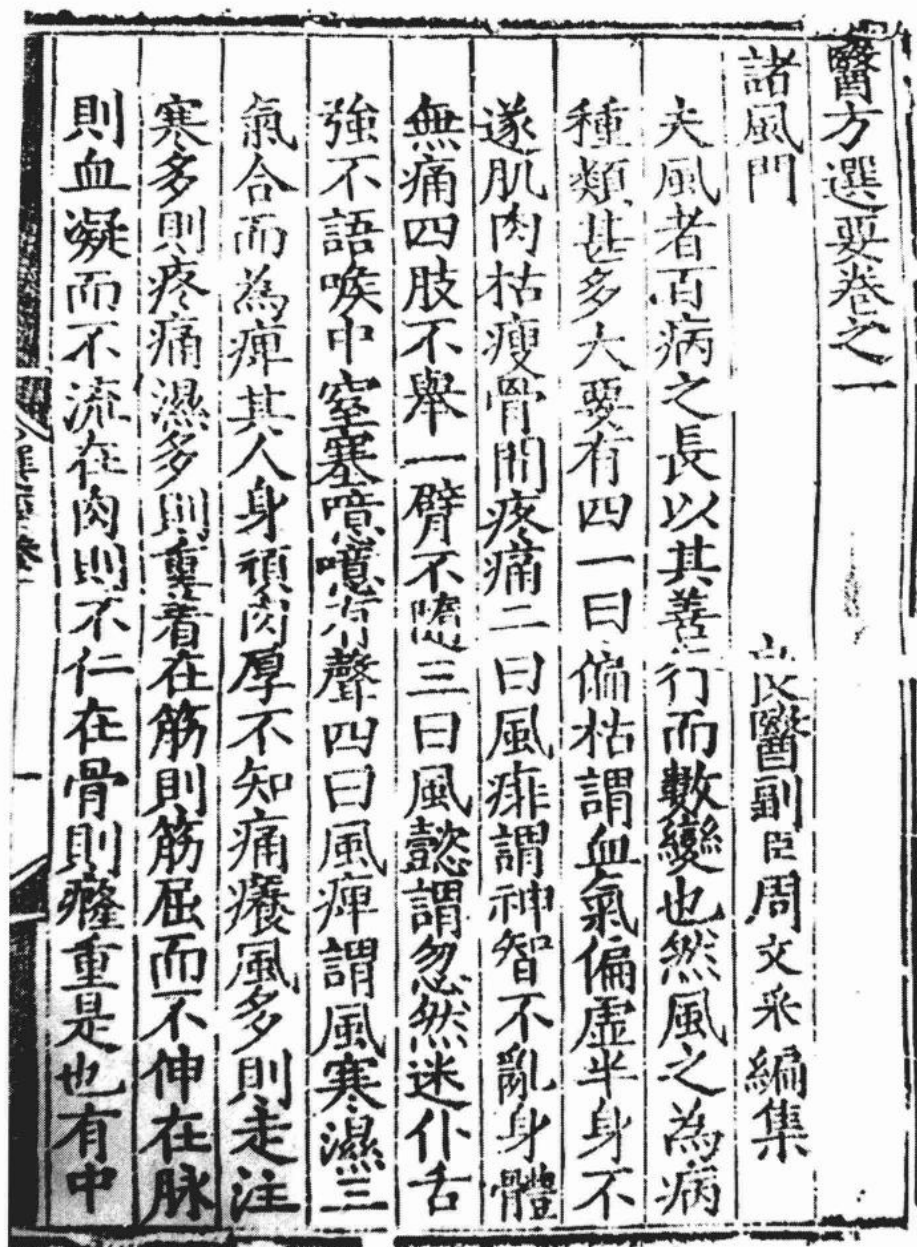 醫方選要卷之一
諸風門
良醫副臣周文采編集
夫風者百病之長以其善行而數變也然風之為病
種類甚多大要有四一曰偏枯謂血氣偏虛半身不
遂肌肉枯瘦骨間疼痛二曰風痱謂神智不亂身體
無痛四肢不舉一臂不隨三曰風懿謂忽然迷仆舌
強不語喉中窒塞噫噫有聲四曰風痺謂風寒濕三
氣合而為痺其人身頑肉厚不知痛癢風多則走注
寒多則疼痛濕多則重着在筋則筋屈而不伸在脉
則血凝而不流在肉則不仁在骨則癃重是也有中
一